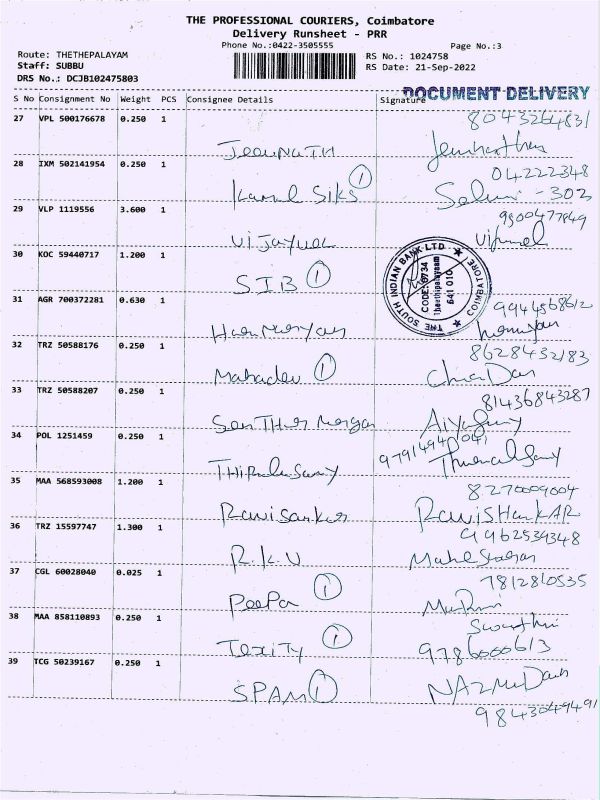 THE PROFESSIONAL COURIERS, Coimbatore
Delivery Runsheet - PRR
Phone No.:0422-3505555
Page No.:3
Route: THETHEPALAYAM
Staff: SUBBU
DRS No.: DCJB102475803
RS No.: 1024758
RS Date: 21-Sep-2022
DOCUMENT DELIVERY
S No Consignment No Weight PCS Consignee Details Signature
27 VPL 500176678 0.250 1
8043264831
28 IXM 502141954 0.250 1
Kamal Siks 1
042 22348
Selvi - 302
29 VLP 1119556 3.600 1
9500477849
Vijayuer
Vifunel
30 KOC 59440717 1.200 1
SIB 1
THE SOUTH INDIAN BANK LTD. COIMBATORE
CODE: 0734
Theethipalayaam
641 010
31 AGR 700372281 0.630 1
9944568612
32 TRZ 50588176 0.250 1
Mahadev 1
8628432183
33 TRZ 50588207 0.250 1
81436843287
34 POL 1251459 0.250 1
35 MAA 568593008 1.200 1
Ravisanker
8270009004
RaviSHanKAR
36 TRZ 15597747 1.300 1
R.K.U
9962534348
37 CGL 60028040 0.025 1
PeePa 1
7812810535
38 MAA 858110893 0.250 1
Texity 1
9786000613
39 TCG 50239167 0.250 1
SPAM 1
9843049491